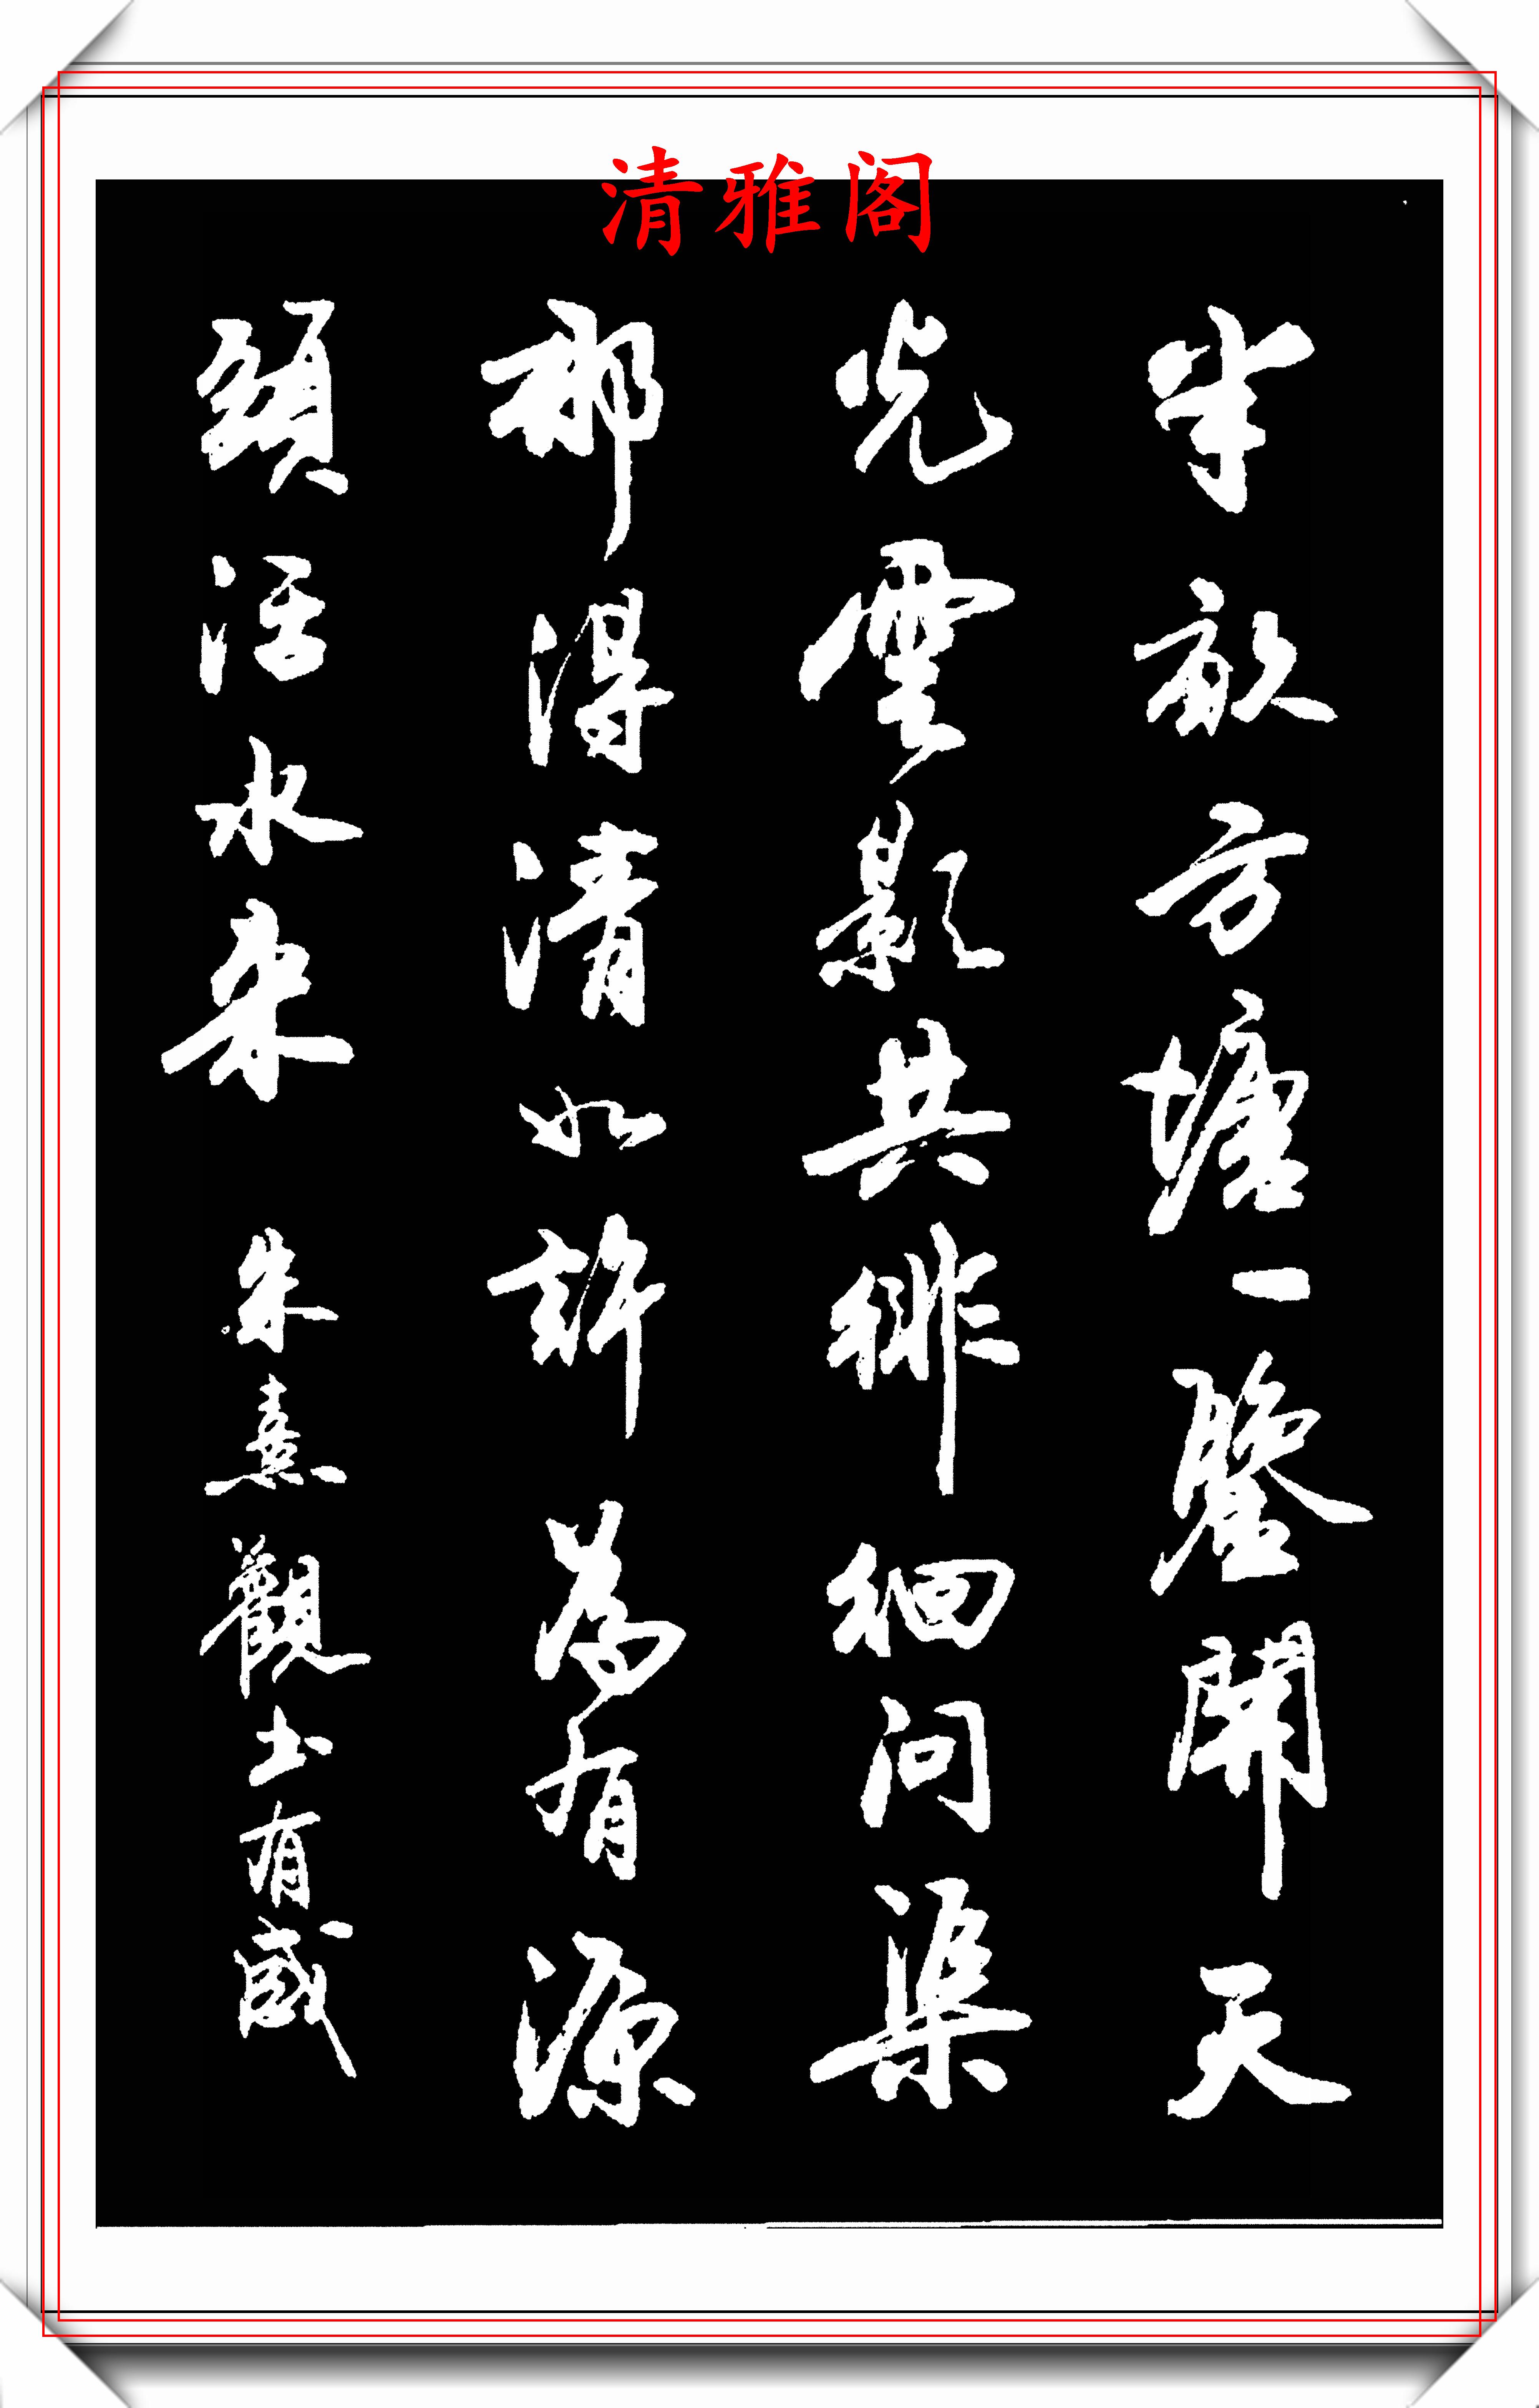 清雅阁
半畝方塘一鑒開天
光雲影共徘徊问渠
那得清如許為有源
頭活水来 朱熹觀士有感